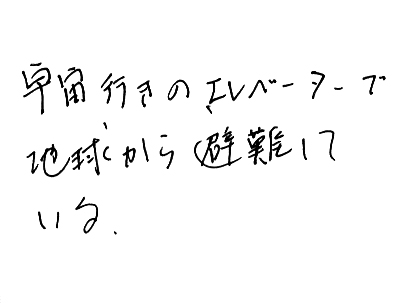 宇宙行きのエレベーターで
地球から避難して
いる.